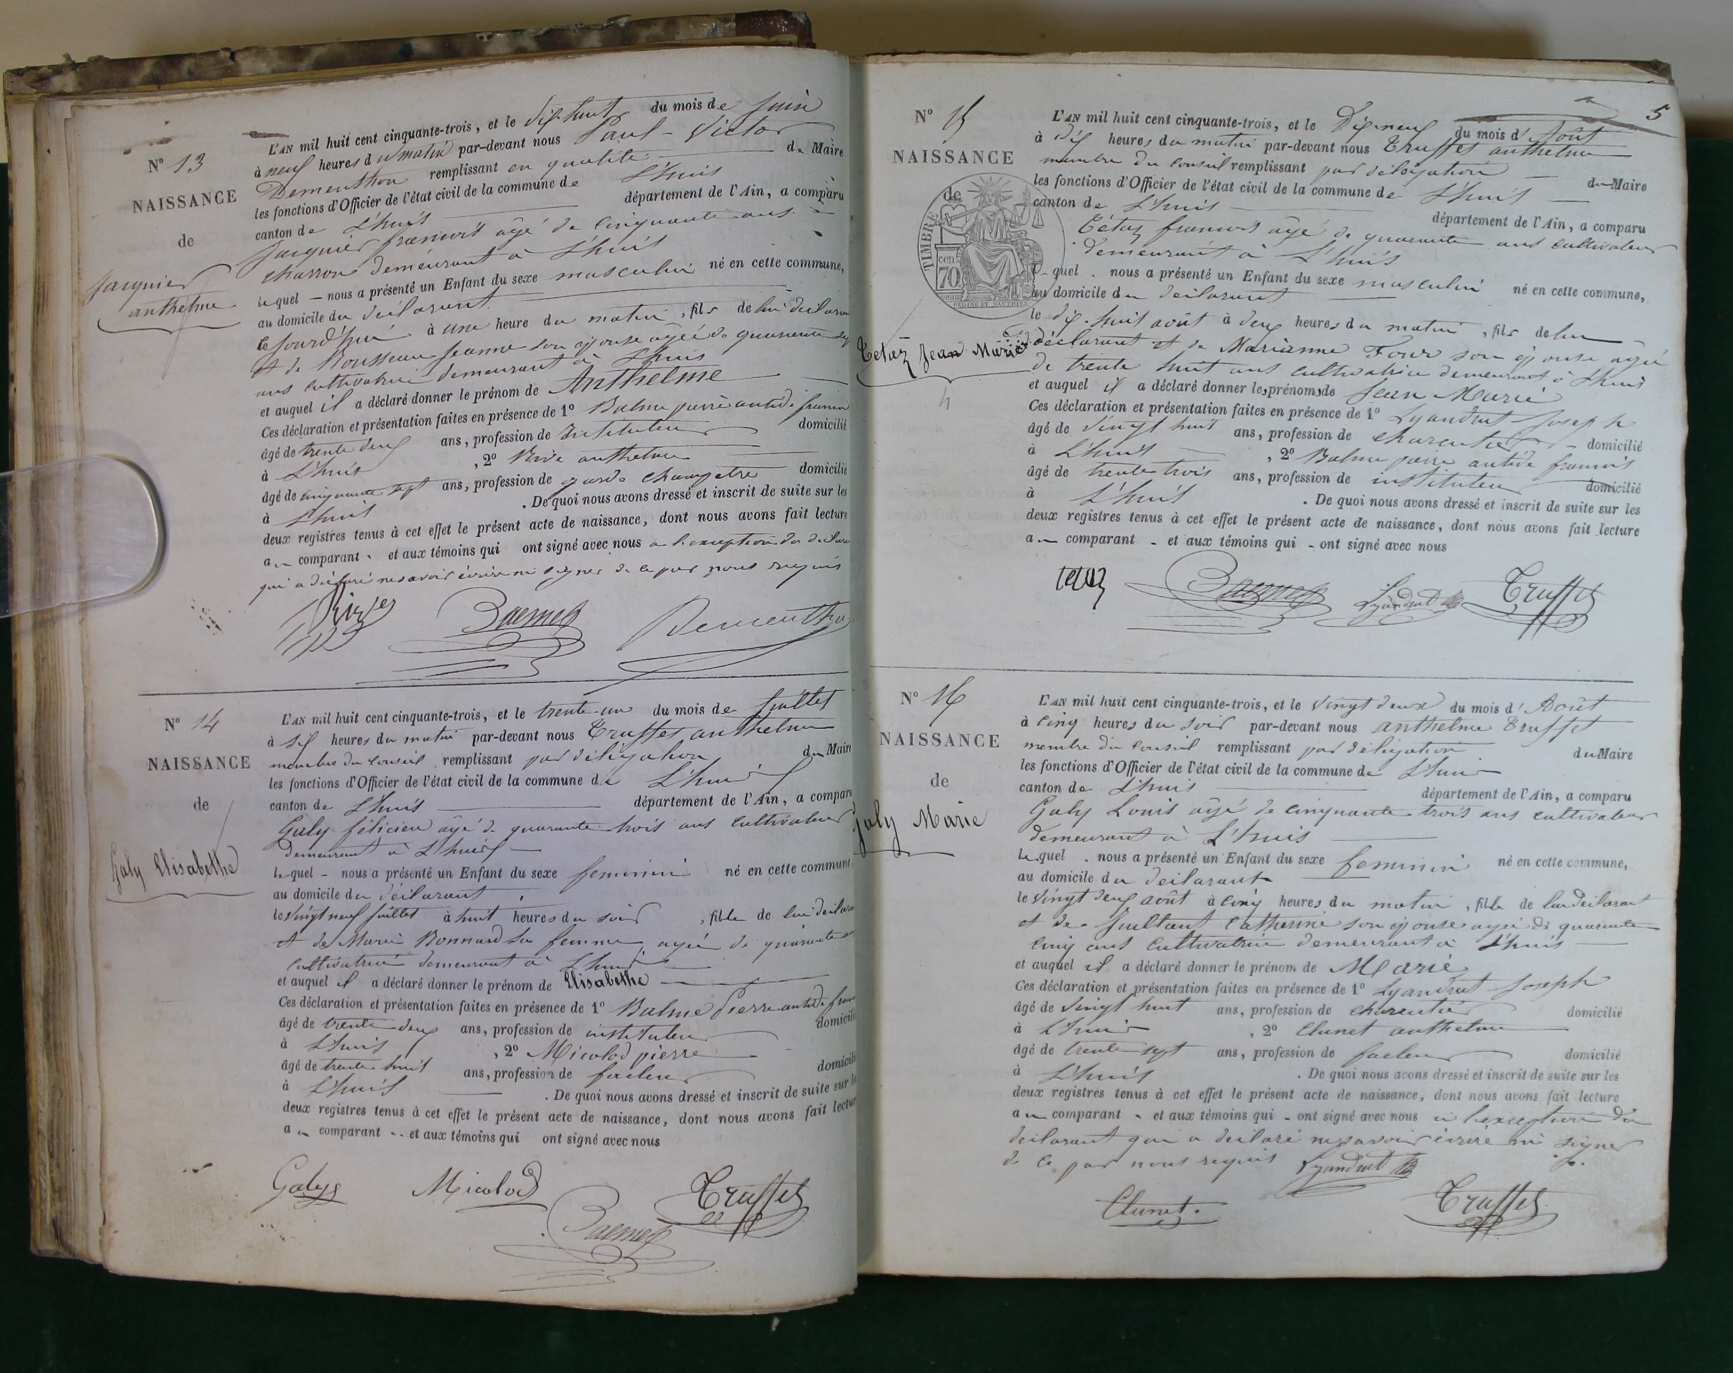 N° 13
NAISSANCE
de
Jarguier
anthelme
L'AN mil huit cent cinquante-trois, et le dix huit du mois de Juin
à neuf heures du matin par-devant nous Paul - Victor
Dementhon remplissant en qualité du Maire
les fonctions d'Officier de l'état civil de la commune de L'huis
canton de L'huis département de l'Ain, a comparu
Jarguier francois âgé de cinquante ans
charron demeurant à L'huis
lequel nous a présenté un Enfant du sexe masculin né en cette commune,
au domicile du déclarant
le jourd'hui à une heure du matin, fils de lui déclarant
et de Rousseau Jeanne son épouse agée de quarante
ans cultivatrice demeurant à L'huis
et auquel il a déclaré donner le prénom de Anthelme
Ces déclaration et présentation faites en présence de 1° Balme pierre antide francois
âgé de trente deux ans, profession de Instituteur domicilié
à L'huis, 2° anthelme
âgé de cinquante sept ans, profession de garde champetre domicilié
à L'huis. De quoi nous avons dressé et inscrit de suite sur les
deux registres tenus à cet effet le présent acte de naissance, dont nous avons fait lecture
au comparant et aux témoins qui ont signé avec nous a l'exception du
qui a déclaré ne savoir écrire ni signer de ce par nous requis
Dementhon
N° 14
NAISSANCE
de
Galy Elisabethe
L'AN mil huit cent cinquante-trois, et le trente-un du mois de Juillet
à six heures du matin par-devant nous Truffet anthelme
membre du conseil remplissant par délégation du Maire
les fonctions d'Officier de l'état civil de la commune de L'huis
canton de L'huis département de l'Ain, a comparu
Galy félicien âgé de quarante trois ans cultivateur
demeurant à L'huis
lequel - nous a présenté un Enfant du sexe feminin né en cette commune
au domicile du déclarant
le vingt neuf juillet à huit heures du soir, fille de lui déclarant
et de Marie Bonnard sa femme, agée de quarante
cultivatrice demeurant à L'huis
et auquel il a déclaré donner le prénom de Elisabethe
Ces déclaration et présentation faites en présence de 1° Balme Pierre antide
âgé de trente deux ans, profession de instituteur domicilié
à L'huis, 2° Micolod pierre
âgé de trente huit ans, profession de facteur domicilié
à L'huis. De quoi nous avons dressé et inscrit de suite sur les
deux registres tenus à cet effet le présent acte de naissance, dont nous avons fait lecture
au comparant - et aux témoins qui ont signé avec nous
Galy Micolod Truffet
5
N° 15
NAISSANCE
de
TIMBRE
70
Tétaz Jean Marie
L'AN mil huit cent cinquante-trois, et le Dix neuf du mois d'Août
à dix heures du matin par-devant nous Truffet anthelme
membre du conseil remplissant par délégation du Maire
les fonctions d'Officier de l'état civil de la commune de L'huis
canton de L'huis département de l'Ain, a comparu
Tétaz francois âgé de quarante ans cultivateur
demeurant à L'huis
lequel nous a présenté un Enfant du sexe masculin né en cette commune,
au domicile du déclarant
le dix-huit août à deux heures du matin, fils de lui
déclarant et de Marianne Four son épouse agée
de trente huit ans cultivatrice demeurant à L'huis
et auquel il a déclaré donner les prénoms de Jean Marie
Ces déclaration et présentation faites en présence de 1° Lyandrat Joseph
âgé de vingt huit ans, profession de charcutier domicilié
à L'huis, 2° Balme pierre antide francois
âgé de trente trois ans, profession de instituteur domicilié
à L'huis. De quoi nous avons dressé et inscrit de suite sur les
deux registres tenus à cet effet le présent acte de naissance, dont nous avons fait lecture
au comparant - et aux témoins qui - ont signé avec nous
tetaz Lyandrat Truffet
N° 16
NAISSANCE
de
Galy Marie
L'AN mil huit cent cinquante-trois, et le vingt deux du mois d'Août
à cinq heures du soir par-devant nous anthelme Truffet
membre du conseil remplissant par délégation du Maire
les fonctions d'Officier de l'état civil de la commune de L'huis
canton de L'huis département de l'Ain, a comparu
Galy Louis âgé de cinquante trois ans cultivateur
demeurant à L'huis
lequel nous a présenté un Enfant du sexe feminin né en cette commune,
au domicile du déclarant
le vingt deux août à cinq heures du matin, fille de lui déclarant
et de Catherine son épouse agée de quarante
cinq ans cultivatrice demeurant à L'huis
et auquel il a déclaré donner le prénom de Marie
Ces déclaration et présentation faites en présence de 1° Lyandrat Joseph
âgé de vingt huit ans, profession de charcutier domicilié
à L'huis, 2° Clunet anthelme
âgé de trente sept ans, profession de facteur domicilié
à L'huis. De quoi nous avons dressé et inscrit de suite sur les
deux registres tenus à cet effet le présent acte de naissance, dont nous avons fait lecture
au comparant - et aux témoins qui - ont signé avec nous a l'exception du
déclarant qui a déclaré ne savoir écrire ni signer
de ce par nous requis Lyandrat
Clunet. Truffet